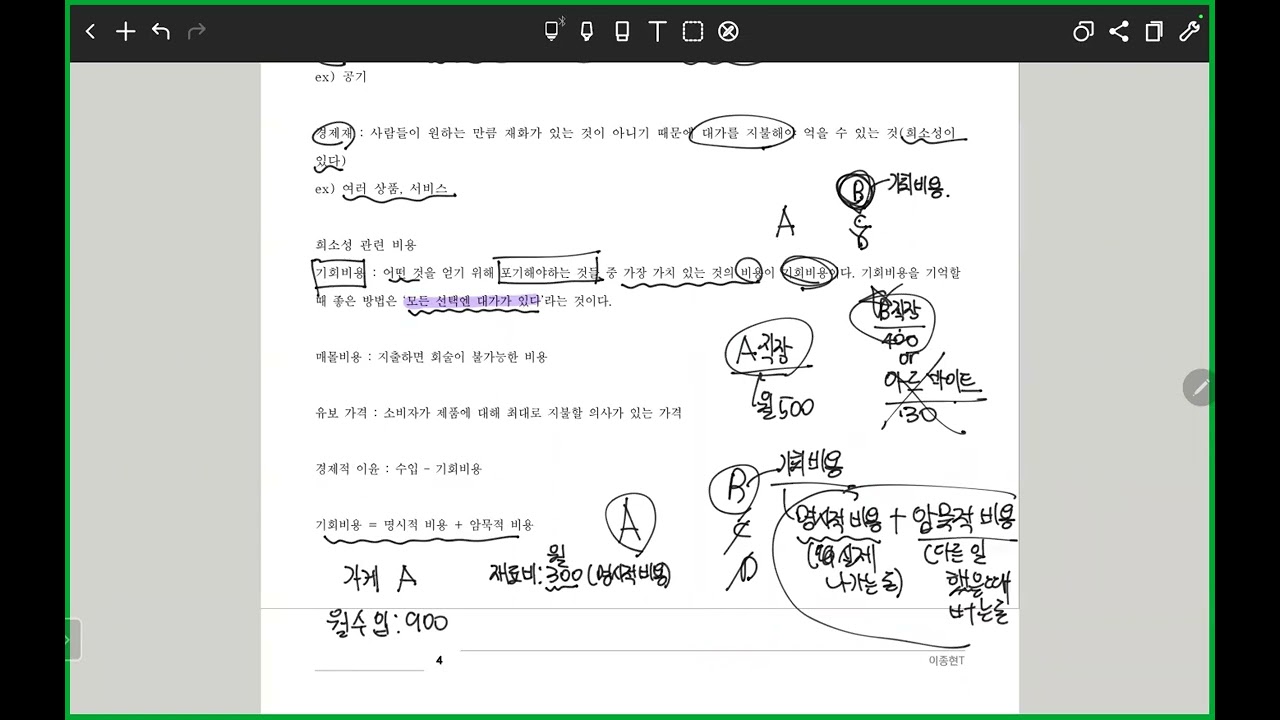 ex) 공기
경제재 : 사람들이 원하는 만큼 재화가 있는 것이 아니기 때문에 대가를 지불해야 얻을 수 있는 것(희소성이
있다)
ex) 여러 상품, 서비스
B 기회비용.
A
C
D
희소성 관련 비용
기회비용 : 어떤 것을 얻기 위해 포기해야하는 것들 중 가장 가치 있는 것의 비용이 기회비용이다. 기회비용을 기억할
때 좋은 방법은 '모든 선택엔 대가가 있다'라는 것이다.
B직장
400
or
아르바이트
130
A직장
월 500
매몰비용 : 지출하면 회술이 불가능한 비용
유보 가격 : 소비자가 제품에 대해 최대로 지불할 의사가 있는 가격
경제적 이윤 : 수입 - 기회비용
기회비용 = 명시적 비용 + 암묵적 비용
A
B 기회비용
C
D
명시적 비용 + 암묵적 비용
(실제 나가는 돈)
(다른 일 했을때 버는돈)
가게 A
월수입 : 900
월
재료비 : 300 (명시적비용)
4
이종현T
T